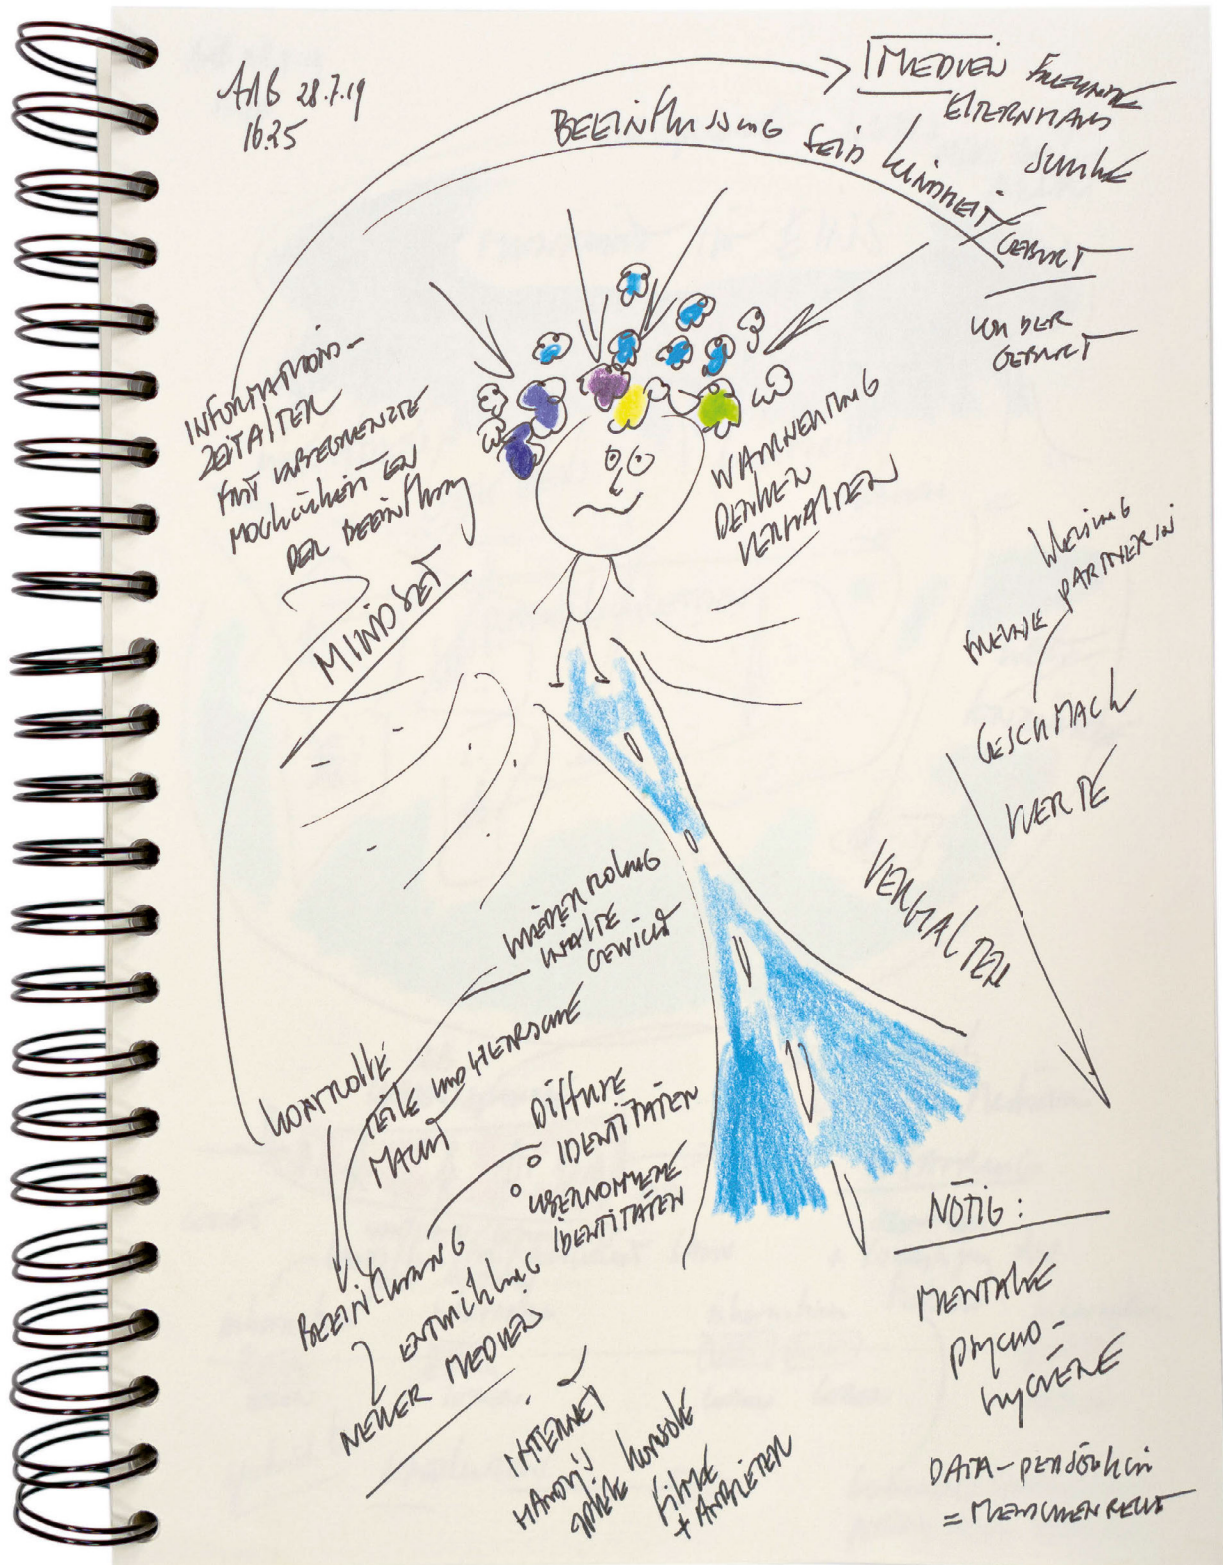 28.7.19
16.25
MEDIEN FREUNDE
ELTERNHAUS
SCHULE
BEEINFLUSSUNG SEID KINDHEIT
GEBURT
VON DER
GEBURT
INFORMATIONS-
ZEITALTER
MIT UNBEGRENZTE
MÖGLICHKEITEN
DER BEEINFLUNG
MINDSET
WAHRNEHMUNG
DENKEN
VERHALTEN
KLEIDUNG
FREUNDE PARTNERIN
GESCHMACK
WERTE
VERHALTEN
WIEDERHOLUNG
INHALTE
GEWICHT
KONTROLLE
TEILE UND HERRSCHE
MACHT
DIFFUSE
IDENTITÄTEN
ÜBERNOMMENE
IDENTITÄTEN
BEEINFLUSSUNG
ENTWICKLUNG
NEUER MEDIEN
INTERNET
HANDYS
SPIELE KONSOLE
FILME
+ ANBIETER
NÖTIG:
MENTALE
PSYCHO-
HYGIENE
DATA-PERSÖNLICH
= MENSCHENRECHT